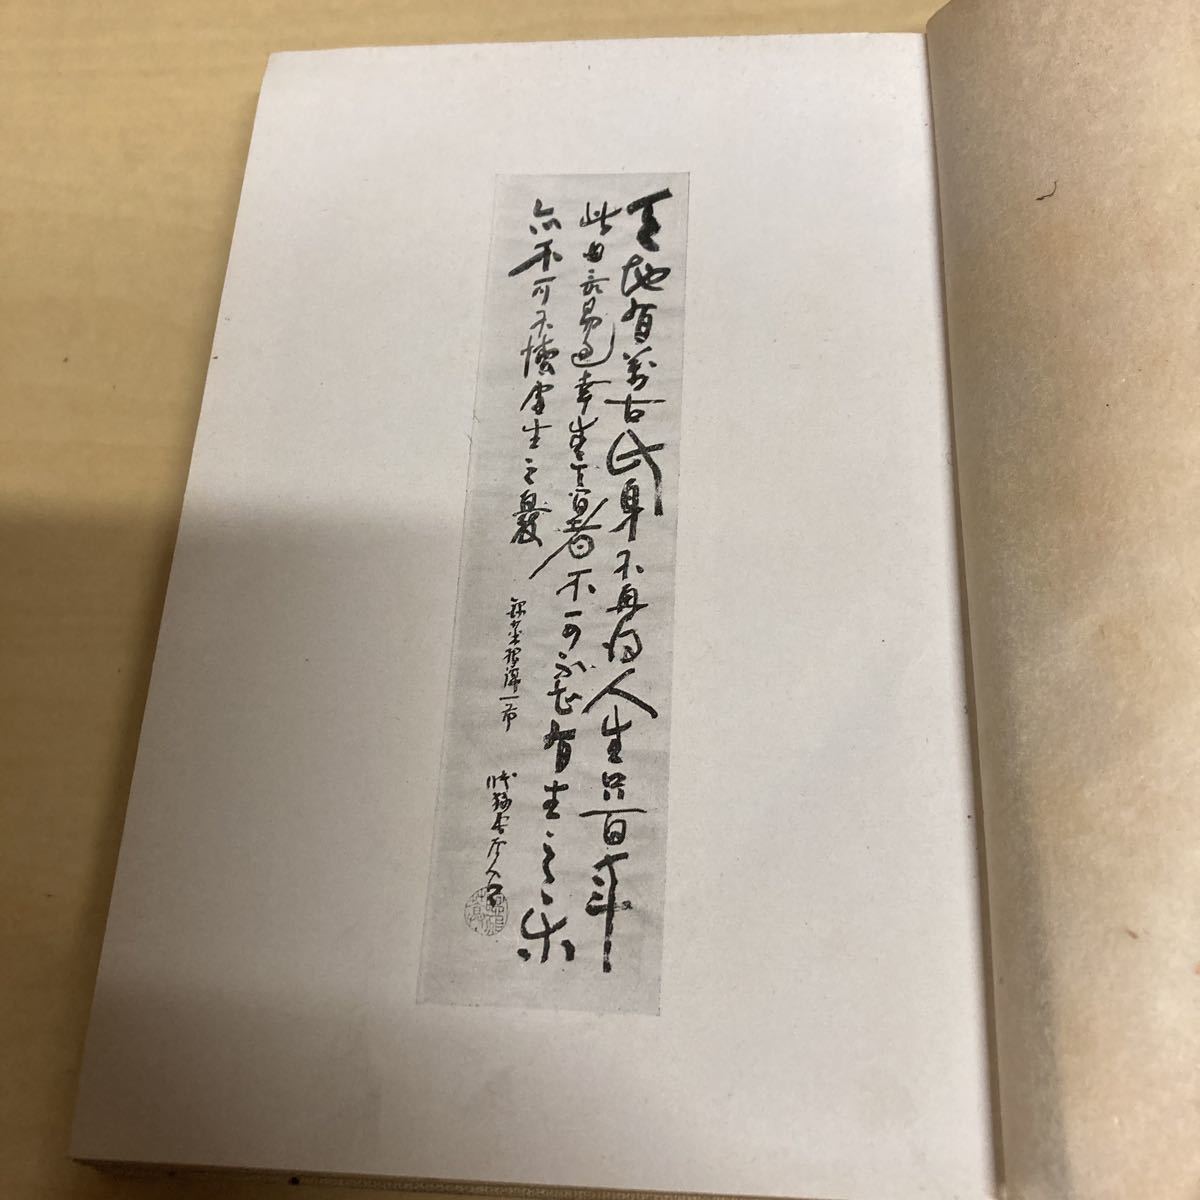 天地有萬古此身不再得人生只百年
此日最易過幸生其間者不可不知有生之樂
亦不可不懷虚生之憂
録菜根譚一節